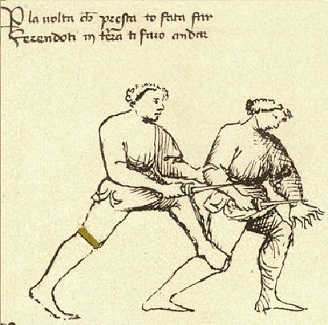 P la volta ch presta to fata far
Ferendoti in terra ti faro andar